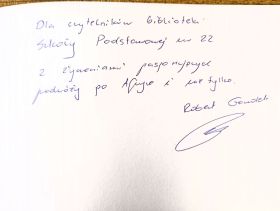 Dla czytelników biblioteki
Szkoły Podstawowej nr 22
z życzeniami pasjonujących
podróży po Afryce i nie tylko.
Robert Gondek